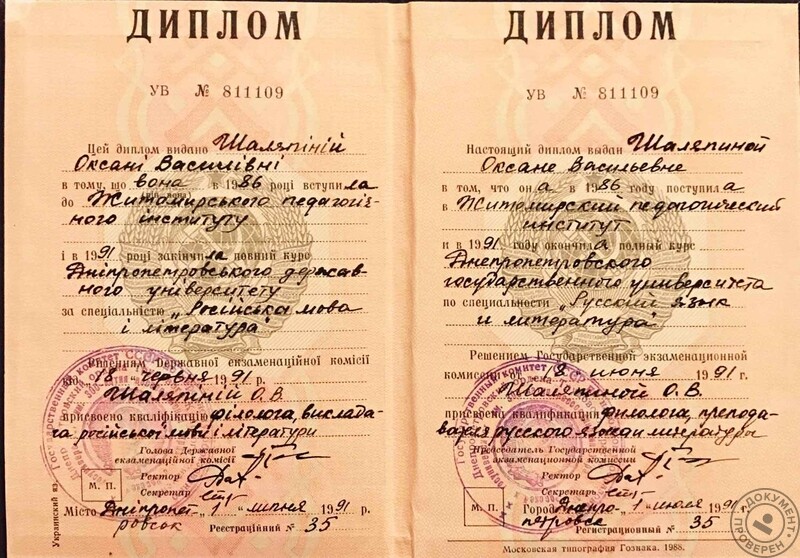 ДИПЛОМ
УВ № 811109
Цей диплом видано Шаляпіній
Оксані Василівні
в тому, що вона в 1986 році вступила
до Житомирського педагогіч-
ного інституту
і в 1991 році закінчила повний курс
Дніпропетровського держав-
ного університету
за спеціальністю „Російська мова
і література"
Рішенням Державної екзаменаційної комісії
від 18 червня 1991 р.
Шаляпіній О.В.
присвоєно кваліфікацію філолога, виклада-
ча російської мови і літератури
Голова Державної
екзаменаційної комісії
Ректор
М. П.
Секретар
Місто Дніпропет- „1" липня 1991 р.
ровськ
Реєстраційний № 35
Украинский яз.
ДИПЛОМ
УВ № 811109
Настоящий диплом выдан Шаляпиной
Оксане Васильевне
в том, что она в 1986 году поступила
в Житомирский педагогический
институт
и в 1991 году окончила полный курс
Днепропетровского
государственного университета
по специальности „Русский язык
и литература"
Решением Государственной экзаменационной
комиссии от 18 июня 1991 г.
Шаляпиной О.В.
присвоена квалификация филолога, препода-
вателя русского языка и литературы
Председатель Государственной
экзаменационной комиссии
Ректор
М. П.
Секретарь
Город Днепро- „1" июля 1991 г.
петровск
Регистрационный № 35
Московская типография Гознака. 1988.
ДОКУМЕНТ
ПРОВЕРЕН